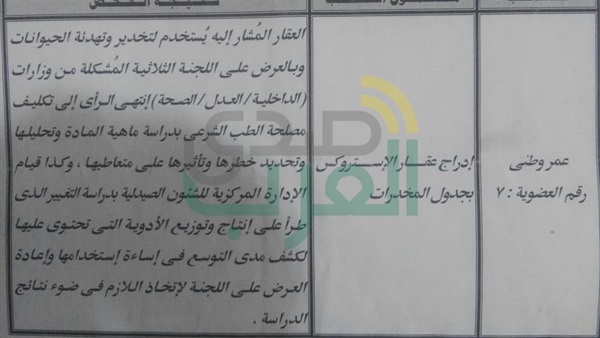 نتيجة الفحص
عمر وطنى
رقم العضوية : ٧
إدراج عقار الإستروكس
بجدول المخدرات
العقار المُشار إليه يُستخدم لتخدير وتهدئة الحيوانات
وبالعرض على اللجنة الثلاثية المُشكلة من وزارات
(الداخلية / العدل / الصحة) إنتهى الرأى إلى تكليف
مصلحة الطب الشرعى بدراسة ماهية المادة وتحليلها
وتحديد خطرها وتأثيرها على متعاطيها ، وكذا قيام
الإدارة المركزية للشئون الصيدلية بدراسة التغيير الذى
طرأ على إنتاج وتوزيع الأدوية التى تحتوى عليها
لكشف مدى التوسع فى إساءة إستخدامها وإعادة
العرض على اللجنة لإتخاذ اللازم فى ضوء نتائج
الدراسة .
صدى
العرب